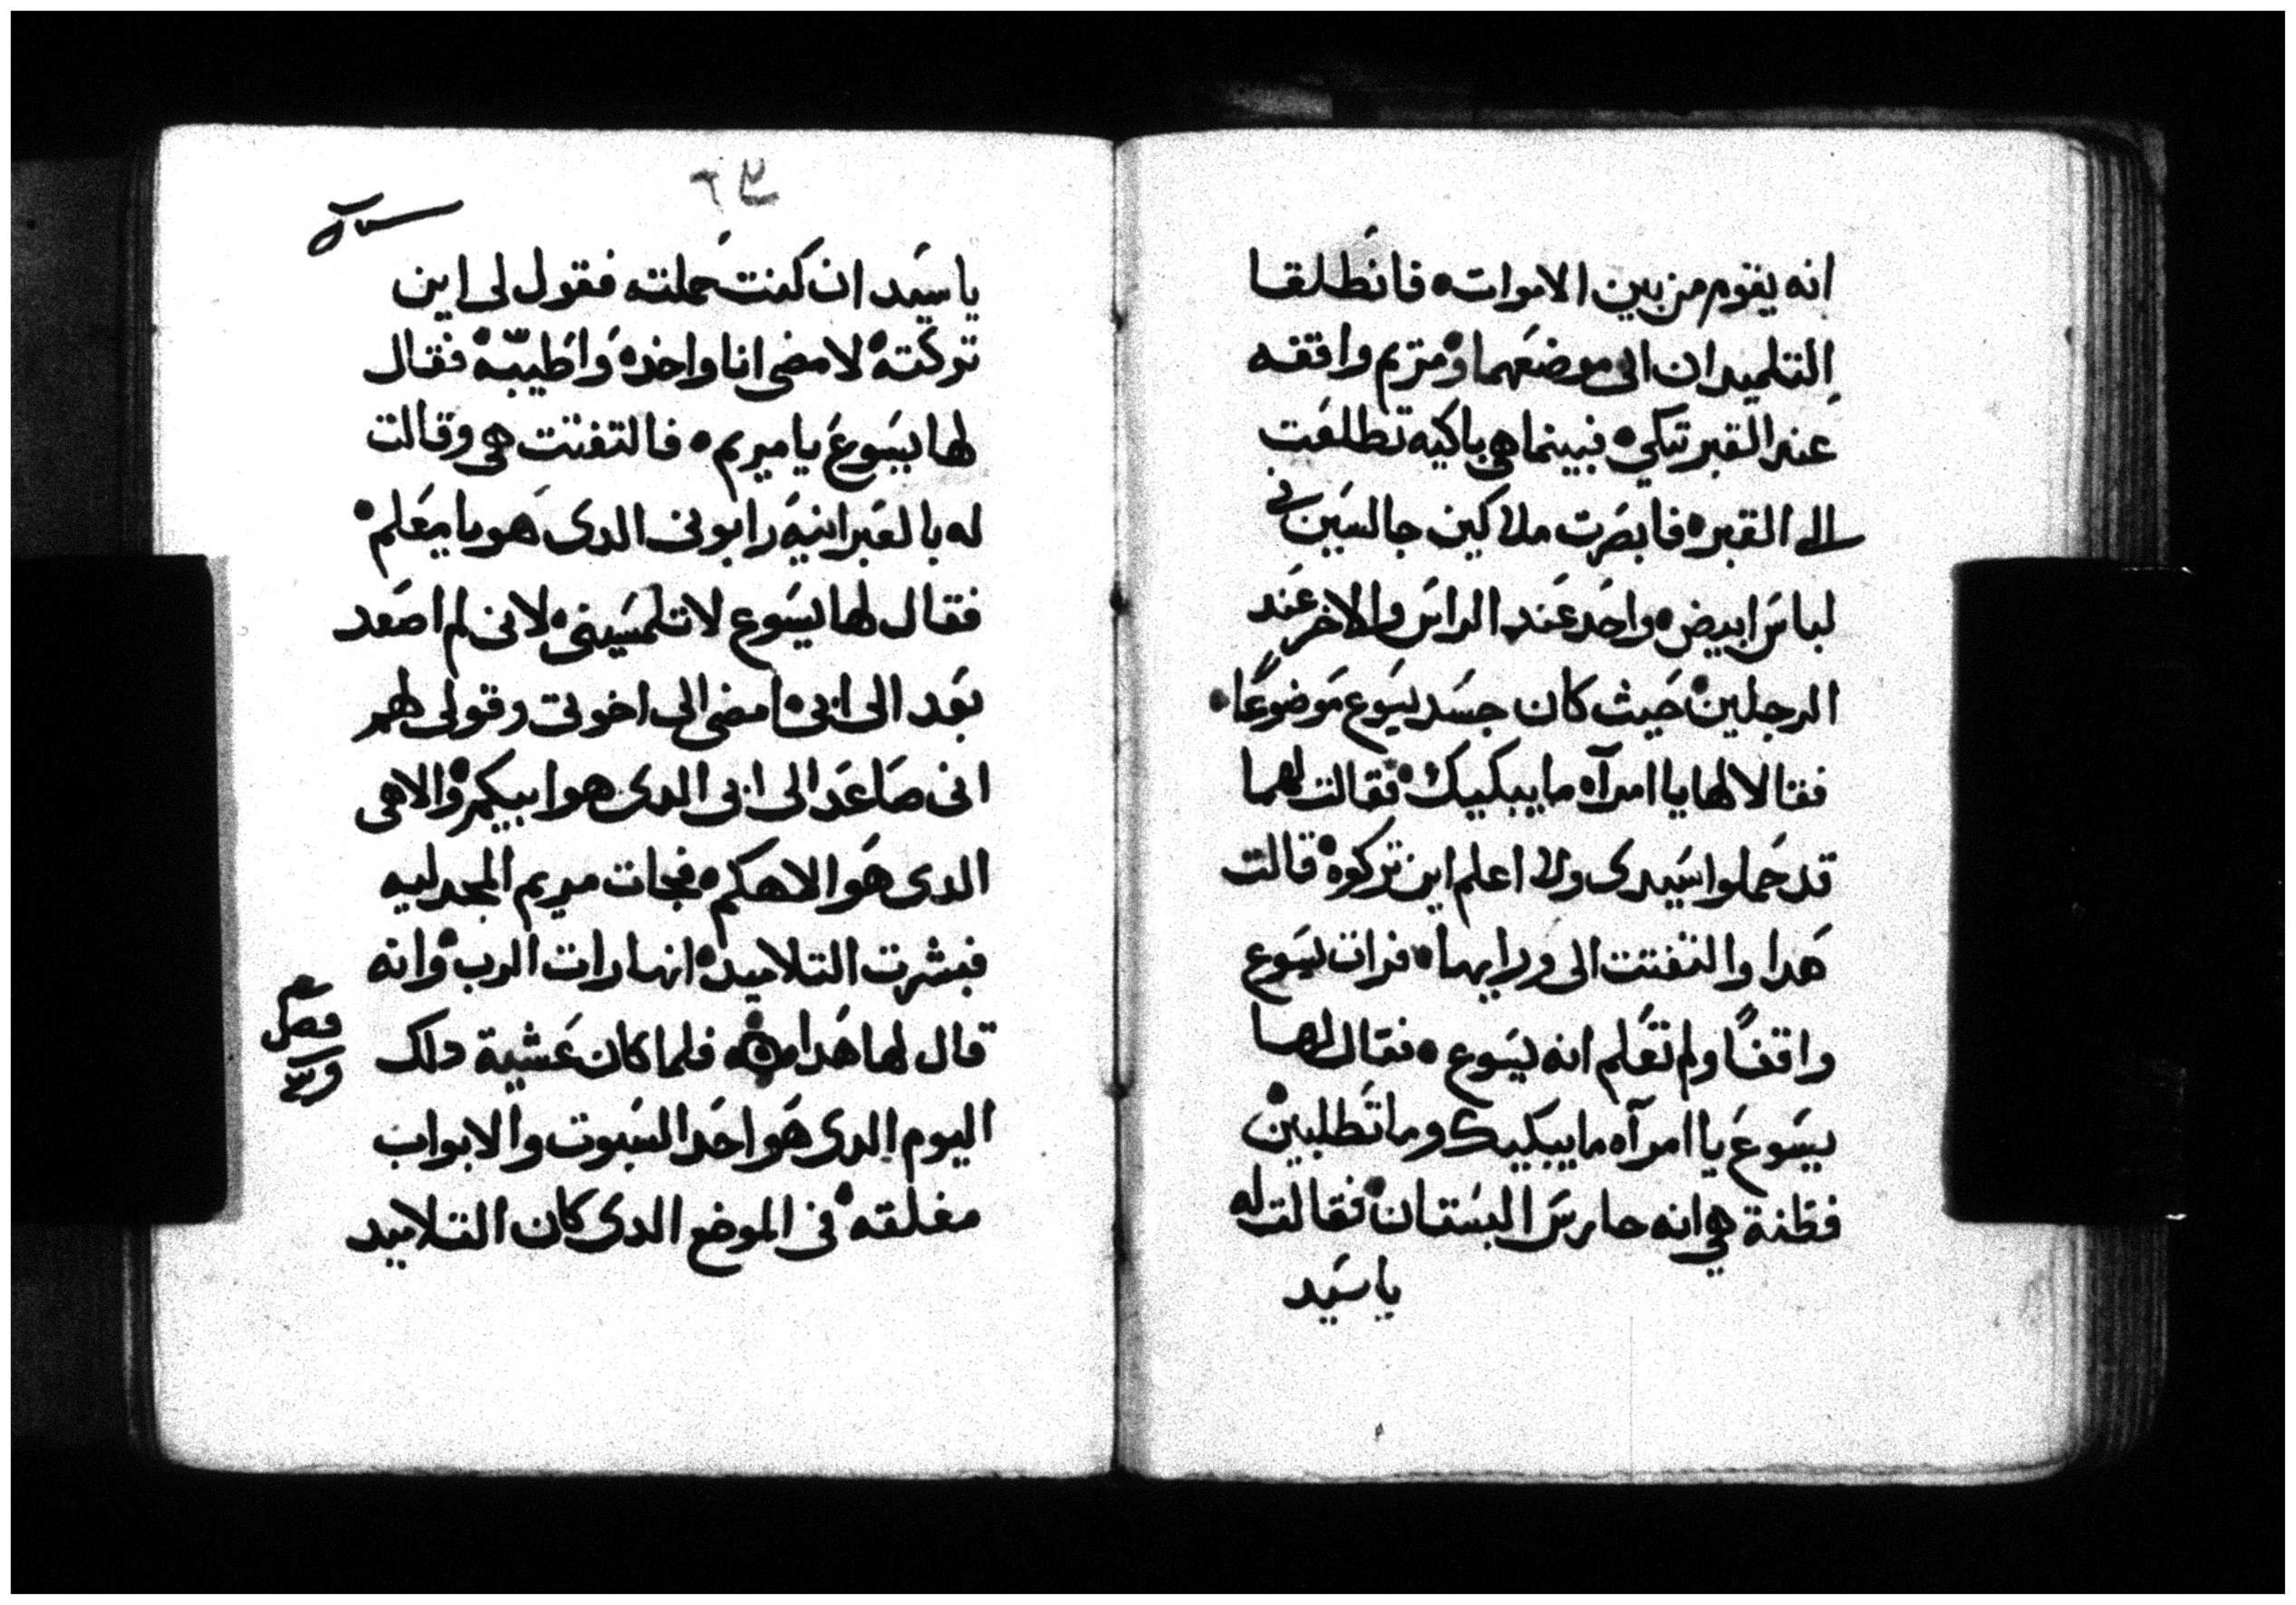 انه يقوم من بين الاموات ه فانطلقا
التلميدان الى موضعهما ه ومريم واقفه
عند القبر تبكي ه فبينما هي باكيه تطلعت
الى القبر ه فابصرت ملاكين جالسين في
لباس ابيض ه واحد عند الراس والاخر عند
الرجلين ه حيث كان جسد يسوع موضوعًا ه
فقالا لها يا امرآه ما يبكيك ه فقالت لهما
قد حملوا سيدى ولا اعلم اين تركوه ه قالت
هدا والتفتت الى ورايها ه فرات يسوع
واقفًا ولم تعلم انه يسوع ه فقال لها
يسوع يا امرآه ما يبكيك وما تطلبين ه
فظنة هي انه حارس البستان ه فقالت له
يا سيد
يا سيد ان كنت حملته فقول لى اين
تركته ه لامضى انا واخده واطيبه ه فقال
لها يسوع يا ميريم ه فالتفتت هي وقالت
له بالعبرانيه رابونى الدى هو يا معلم ه
فقال لها يسوع لا تلمسينى ه لانى لم اصعد
بعد الى ابى ه امضى الى اخوتى وقولى لهم
انى صاعد الى ابى الدى هو ابيكم ه والاهى
الدى هو الاهكم ه فجات ميريم المجدليه
فبشرت التلاميد ه انها رات الرب ه وانه
قال لها هدا ه فلما كان عشية دلك
اليوم الدى هو احد السبوت والابواب
مغلقه ه فى الموضع الدى كان التلاميد
فصل